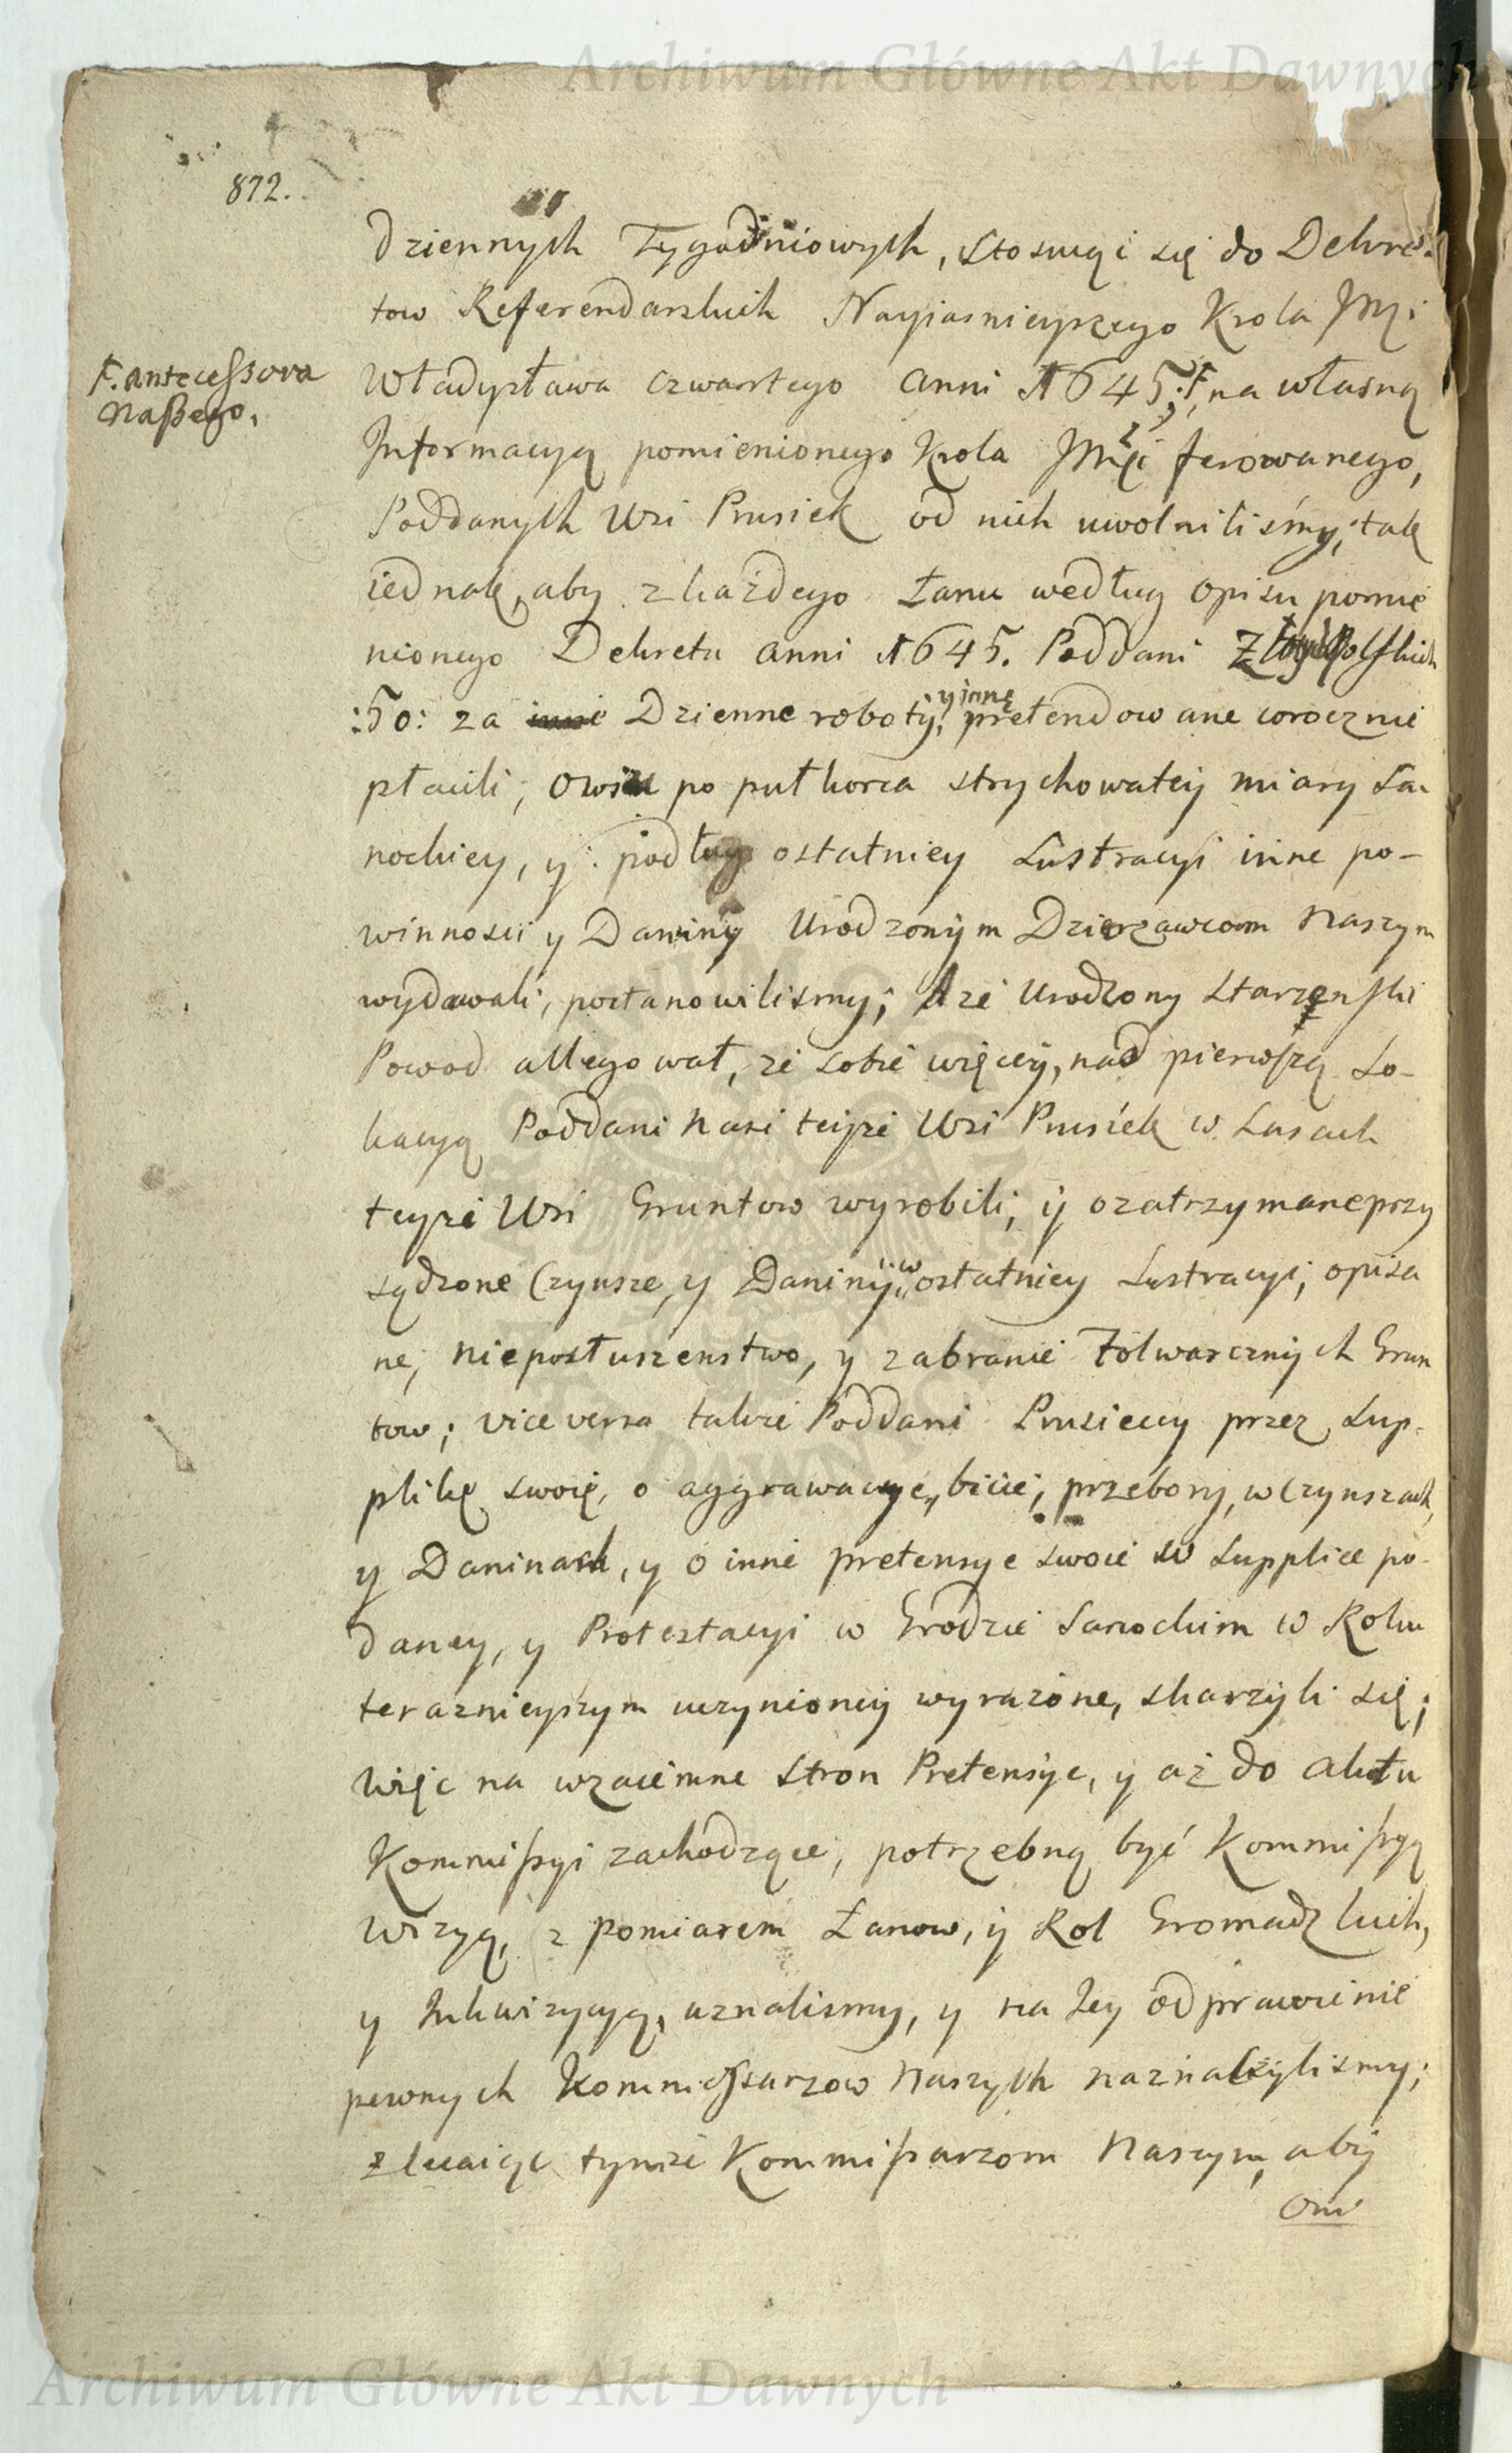 Archiwum Główne Akt Dawnych
872.
dziennych Tygodniowych, stosuiąc się do Dekre-
tow Referendarskich Nayiasnieyszego Krola JMci
F. antecessora
naszego.
Władysława czwartego anni 1645. F. na własną
Informacyą pomienionego Krola JMci ferowanego,
Poddanych Wsi Prusiek od nich uwolniliśmy, tak
iednak, aby z każdego Łanu według opisu pomie
nionego Dekretu anni 1645. Poddani Złotych Polskich
:50: za inne Dzienne roboty, y inne pretendowane corocznie
płacili, owsa po puł korca strychowatey miary Sa-
nockiey, y podług ostatniey Lustracyi inne po-
winnosci y Daniny Urodzonym Dzierzawcom Naszym
wydawali, postanowilismy; A że Urodzony Starzenski
Powod allegował, że sobie więcey, nad pierwszą Lo-
kacyą Poddani nasi teyże Wsi Prusiek w Lasach
teyże Wsi Gruntow wyrobili, y o zatrzymane przy
sądzone Czynsze, y Daniny w ostatniey Lustracyi, opisa
ne, nieposłuszenstwo, y zabranie Folwarcznych Grun
tow; vice versa także Poddani Prusieccy przez Sup-
plikę swoię, o aggrawacye, bicie, przebory, w Czynszach,
y Daninach, y o inne pretensye swoie w Supplice po-
daney, y Protestacyi w Grodzie Sanockim w Roku
teraznieyszym uczynioney wyrazone, skarzyli się;
Więc na wzaiemne Stron Pretensye, y aż do aktu
Kommissyi zachodzące, potrzebną być Kommissyą
Wizyą, z pomiarem Łanow, y Rol Gromadzkich,
y Inkwizycyą, uznalismy, y na Jey odprawienie
pewnych Kommissarzow Naszych naznaczylismy;
zlecaiąc tymże Kommissarzom Naszym, aby
oni
Archiwum Główne Akt Dawnych